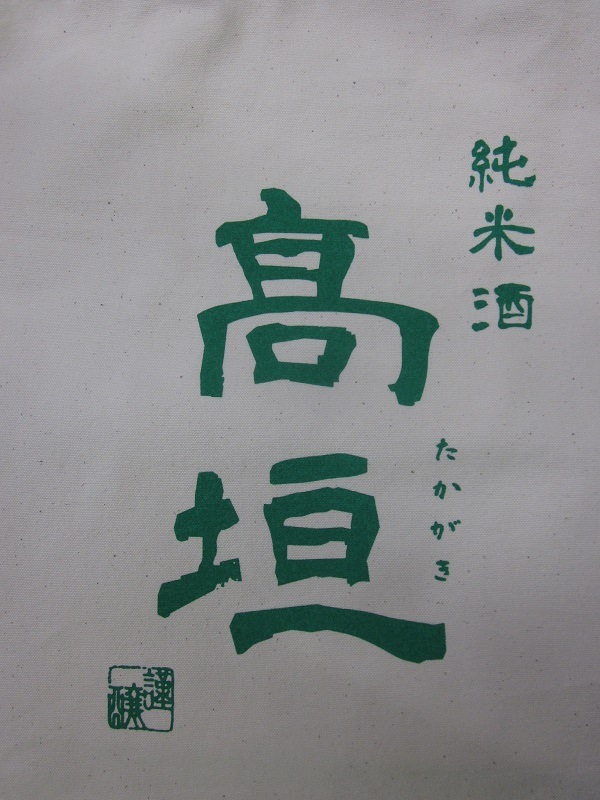 純米酒
髙垣
たかがき
謹醸